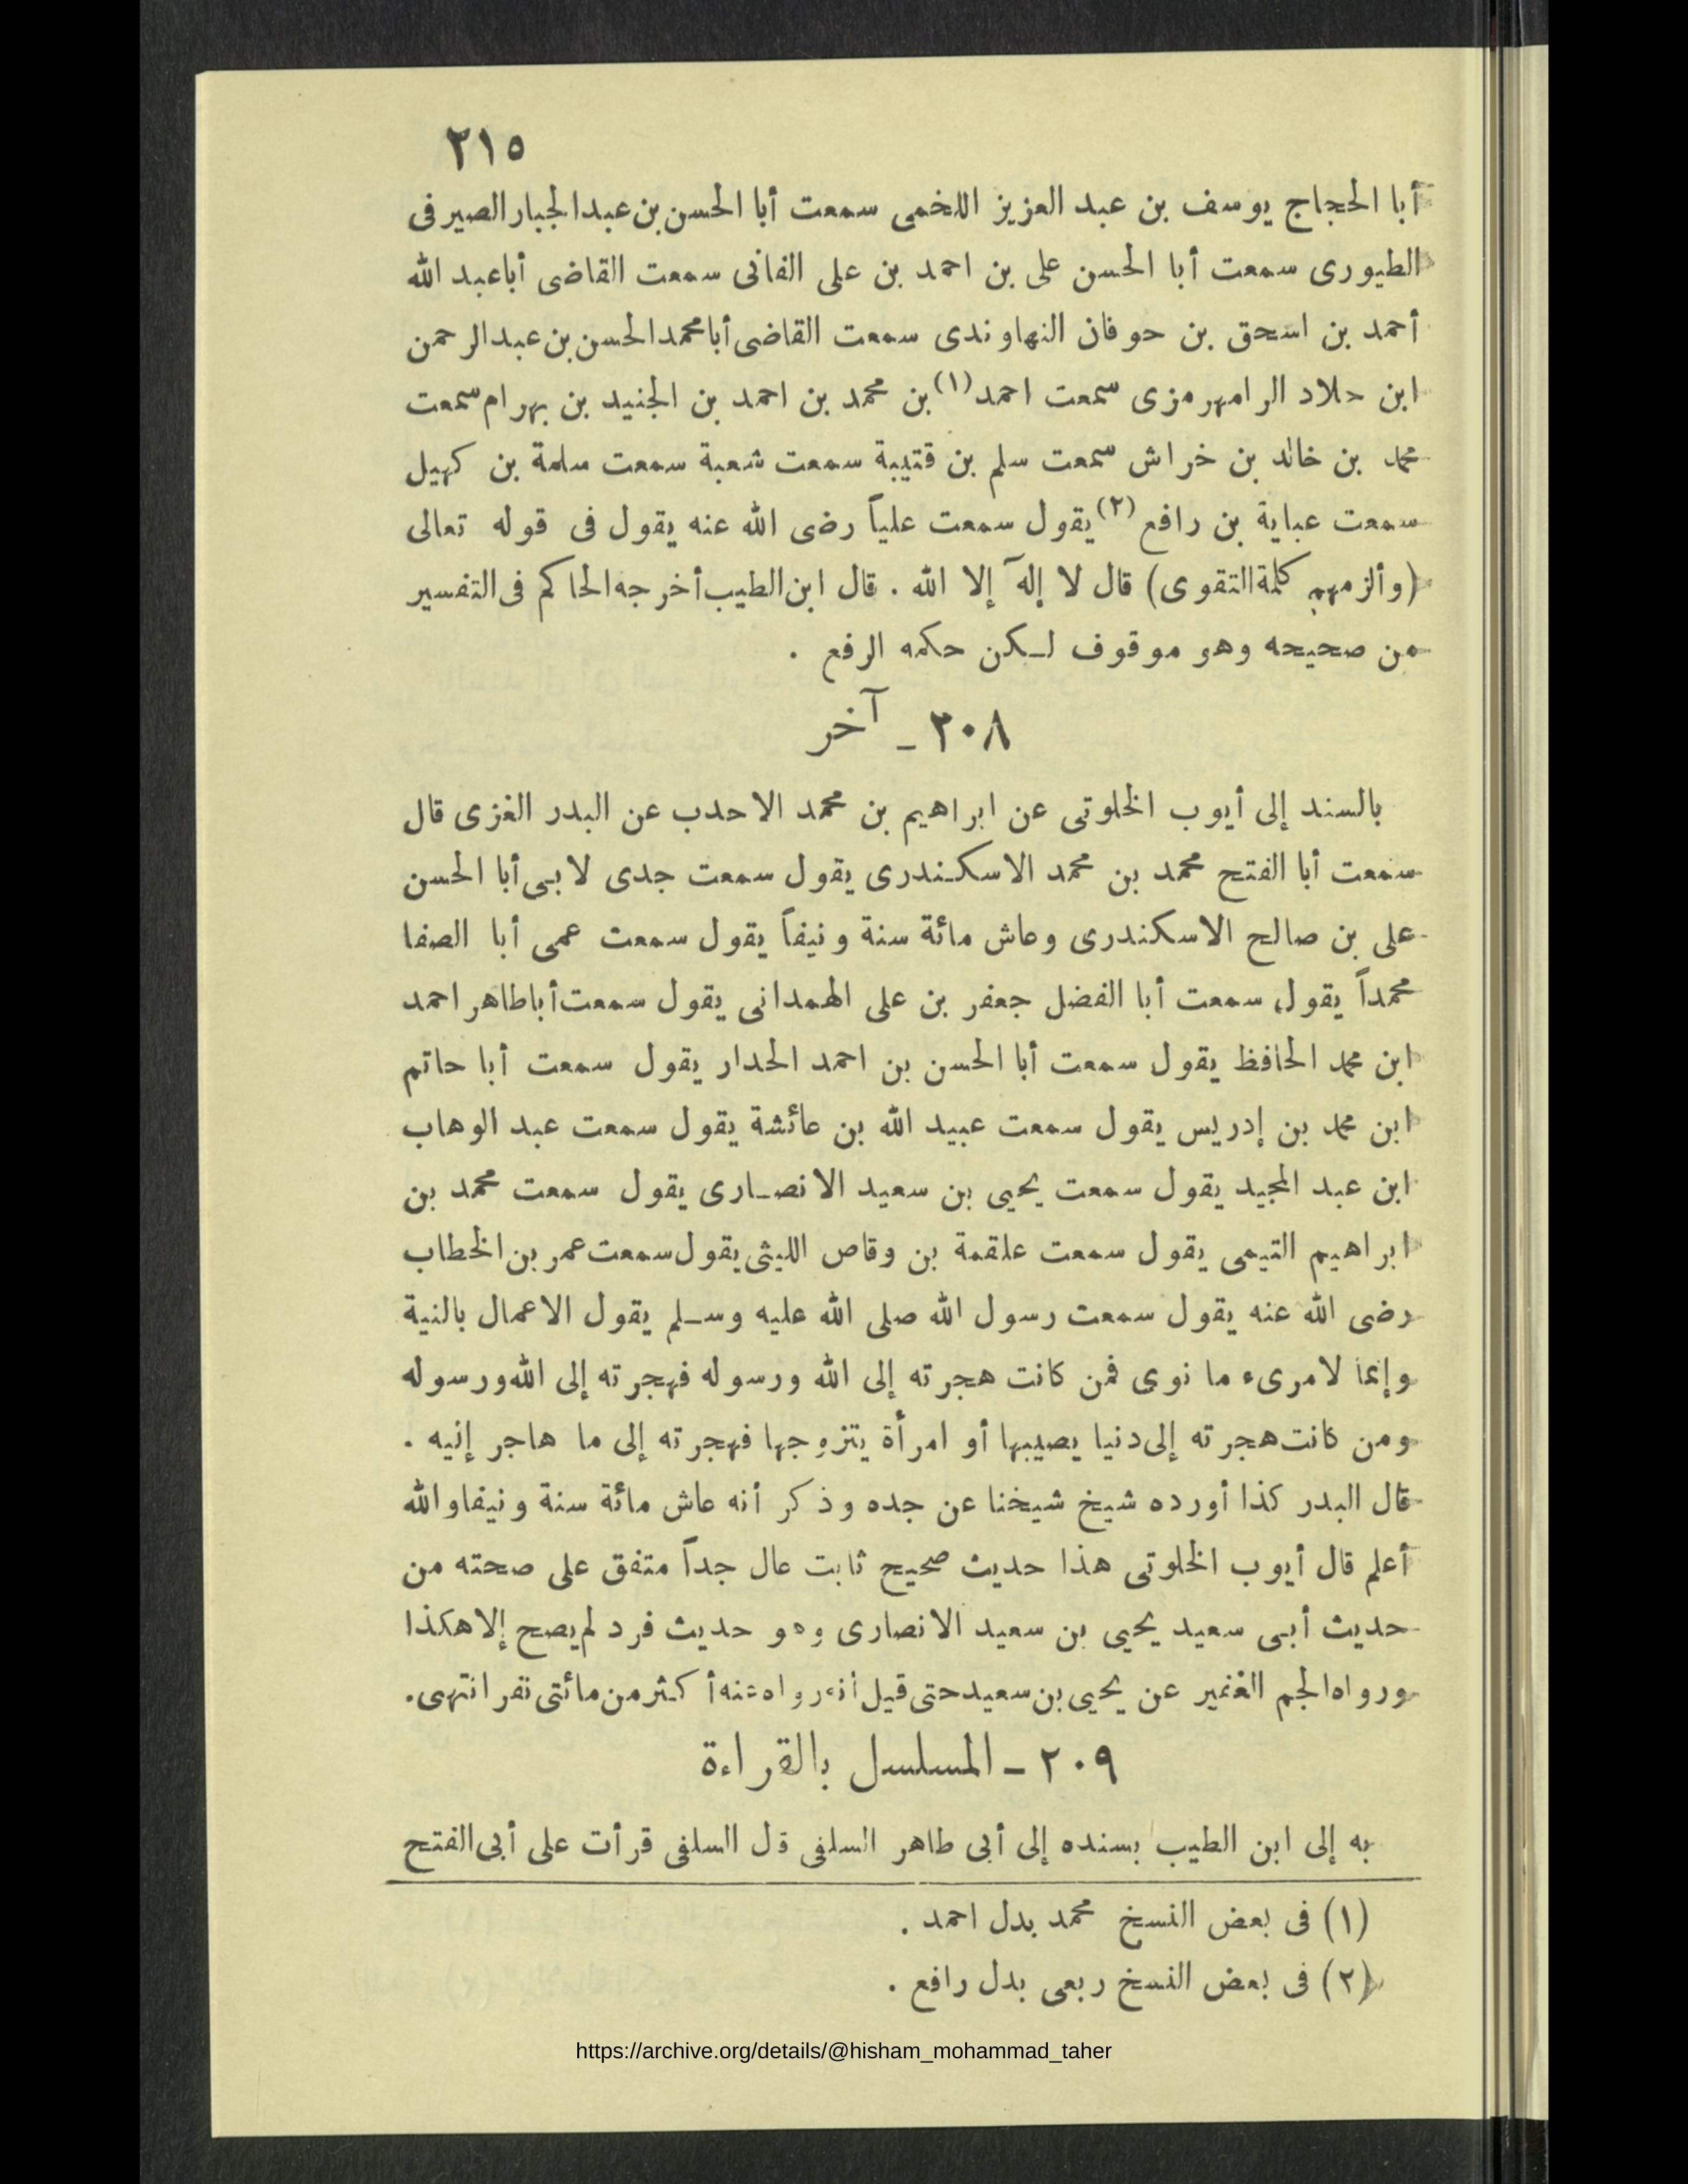 ٢١٥
أبا الحجاج يوسف بن عبد العزيز اللخمى سمعت أبا الحسن بن عبد الجبار الصيرفى
الطيورى سمعت أبا الحسن على بن احمد بن على الفانى سمعت القاضى أبا عبد الله
أحمد بن اسحق بن حوفان النهاوندى سمعت القاضى أبا محمد الحسن بن عبد الرحمن
ابن حلاد الرامهرمزى سمعت احمد (١) بن محمد بن احمد بن الجنيد بن بهرام سمعت
محمد بن خالد بن خراش سمعت سلم بن قتيبة سمعت شعبة سمعت سلمة بن كهيل
سمعت عباية بن رافع (٢) يقول سمعت علياً رضى الله عنه يقول فى قوله تعالى
(وألزمهم كلمة التقوى) قال لا إله إلا الله . قال ابن الطيب أخرجه الحاكم فى التفسير
من صحيحه وهو موقوف لكن حكمه الرفع .
٢٠٨ ـ آخر
بالسند إلى أيوب الخلوتى عن ابراهيم بن محمد الاحدب عن البدر الغزى قال
سمعت أبا الفتح محمد بن محمد الاسكندرى يقول سمعت جدى لابى أبا الحسن
على بن صالح الاسكندرى وعاش مائة سنة ونيفاً يقول سمعت عمى أبا الصفا
محمداً يقول سمعت أبا الفضل جعفر بن على الهمدانى يقول سمعت أبا طاهر احمد
ابن محمد الحافظ يقول سمعت أبا الحسن بن احمد الحدار يقول سمعت أبا حاتم
ابن محمد بن إدريس يقول سمعت عبيد الله بن عائشة يقول سمعت عبد الوهاب
ابن عبد المجيد يقول سمعت يحيى بن سعيد الانصارى يقول سمعت محمد بن
ابراهيم التيمى يقول سمعت علقمة بن وقاص الليثى يقول سمعت عمر بن الخطاب
رضى الله عنه يقول سمعت رسول الله صلى الله عليه وسلم يقول الاعمال بالنية
وإنما لامرىء ما نوى فمن كانت هجرته إلى الله ورسوله فهجرته إلى الله ورسوله
ومن كانت هجرته إلى دنيا يصيبها أو امرأة يتزوجها فهجرته إلى ما هاجر إليه .
قال البدر كذا أورده شيخ شيخنا عن جده وذكر أنه عاش مائة سنة ونيفا والله
أعلم قال أيوب الخلوتى هذا حديث صحيح ثابت عال جداً متفق على صحته من
حديث أبى سعيد يحيى بن سعيد الانصارى وهو حديث فرد لم يصح إلا هكذا
ورواه الجم الغفير عن يحيى بن سعيد حتى قيل أنه رواه عنه أكثر من مائتى نفر انتهى.
٢٠٩ ـ المسلسل بالقراءة
به إلى ابن الطيب بسنده إلى أبى طاهر السلفى قل السلفى قرأت على أبى الفتح
(١) فى بعض النسخ محمد بدل احمد .
(٢) فى بعض النسخ ربعى بدل رافع .
https://archive.org/details/@hisham_mohammad_taher